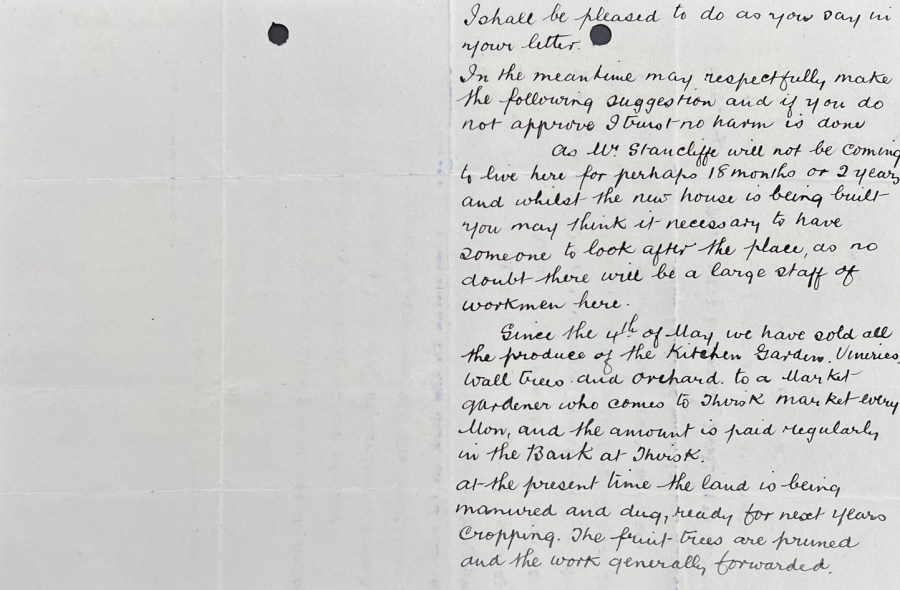 I shall be pleased to do as you say in
your letter.
In the meantime may respectfully make
the following suggestion and if you do
not approve I trust no harm is done
As Mr Stancliffe will not be coming
to live here for perhaps 18 months or 2 years
and whilst the new house is being built
you may think it necessary to have
someone to look after the place, as no
doubt there will be a large staff of
workmen here.
Since the 4th of May we have sold all
the produce of the Kitchen Garden. Vineries.
Wall Trees. and Orchard. to a Market
gardener who comes to Thirsk market every
Mon, and the amount is paid regularly
in the Bank at Thirsk.
at the present time the land is being
manured and dug, ready for next years
Cropping. The fruit trees are pruned
and the work generally forwarded.